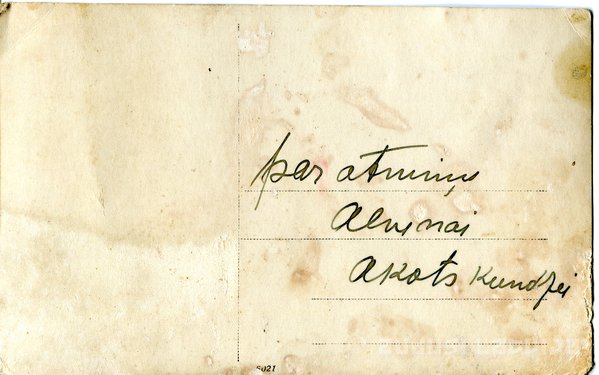 par atmiņu
Alvinai
Akots Kundzei
6021